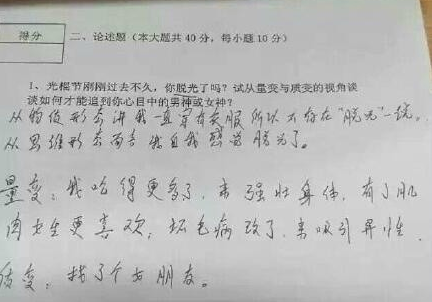 得分
二、论述题（本大题共40分，每小题10分）
1、光棍节刚刚过去不久，你脱光了吗？试从量变与质变的视角谈
谈如何才能追到你心目中的男神或女神？
从物质形态讲我一直穿有衣服所以不存在"脱光"一说。
从思维形态而言我自我感觉脱光了。
量变：我吃得更多了，来强壮身体，有了肌
肉女生更喜欢，坏毛病改了，来吸引异性。
质变：找了个女朋友。